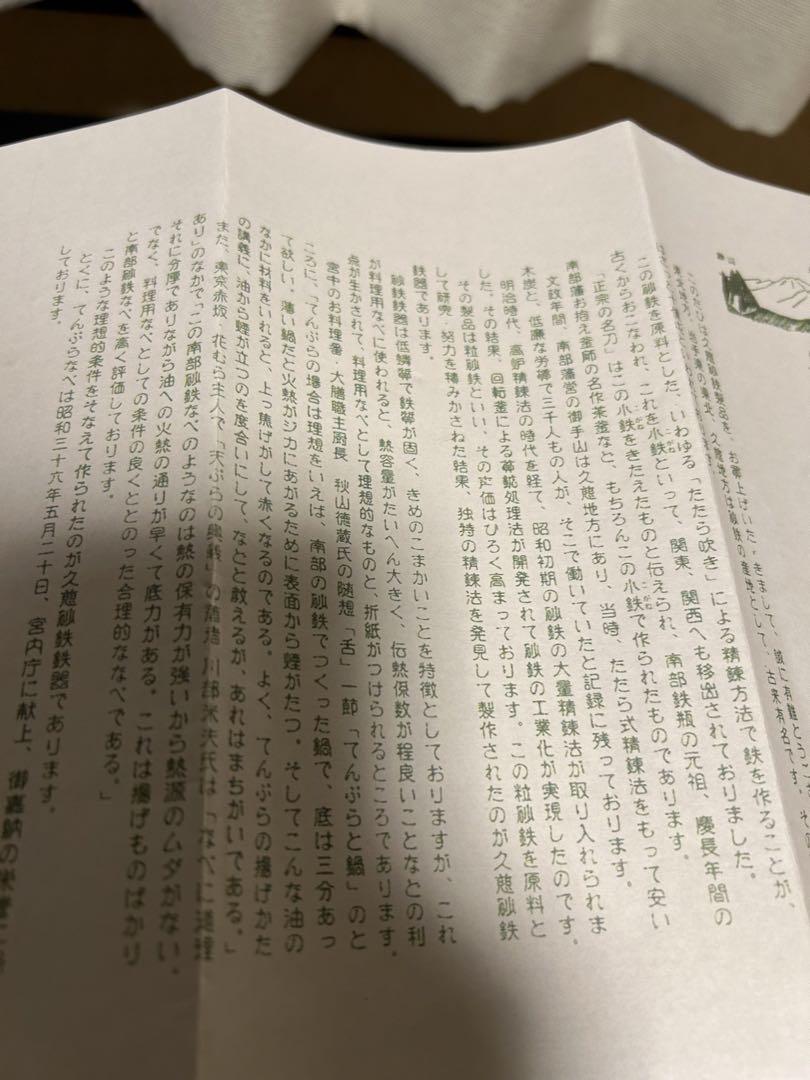 このたびは久慈砂鉄製品を、お買上げいただきまして、誠に有難とうござ
東北地方、岩手県の東北、久慈地方は砂鉄の産地として、古来有名です。その
この砂鉄を原料とした、いわゆる「たたら吹き」による精錬方法で鉄を作ることが、
古くからおこなわれ、これを小鉄といって、関東、関西へも移出されておりました。
「正宗の名刀」はこの小鉄をきたえたものと伝えられ、南部鉄瓶の元祖、慶長年間の
南部藩お抱え釜師の名作茶釜など、もちろんこの小鉄で作られたものであります。
文政年間、南部藩営の御手山は久慈地方にあり、当時、たたら式精錬法をもって安い
木炭と、低廉な労働で三千人もの人が、そこで働いていたと記録に残っております。
明治時代、高炉精錬法の時代を経て、昭和初期の砂鉄の大量精錬法が取り入れられま
した。その結果、回転釜による処理法が開発されて砂鉄の工業化が実現したのです。
その製品は粒砂鉄といい、その声価はひろく高まっております。この粒砂鉄を原料と
して研究・努力を積みかさねた結果、独特の精錬法を発見して製作されたのが久慈砂鉄
鉄器であります。
砂鉄鉄器は低燐で鉄が固く、きめのこまかいことを特徴としておりますが、これ
が料理用なべに使われると、熱容量がたいへん大きく、伝熱係数が程良いことなどの利
点が生かされて、料理用なべとして理想的なものと、折紙がつけられるところであります。
宮中のお料理番、大膳職主厨長 秋山徳蔵氏の随想「舌」一節「てんぷらと鍋」のと
ころに、「てんぷらの場合は理想をいえば、南部の砂鉄でつくった鍋で、底は三分あっ
て欲しい。薄い鍋だと火熱がジカにあがるために表面から煙がたつ。そしてこんな油の
なかに材料をいれると、上っ焦げがして赤くなるのである。よく、てんぷらの揚げかた
の講義に、油から煙が立つのを度合いにして、などと教えるが、あれはまちがいである。」
また、東京赤坂・花むら主人で「天ぷらの奥義」の著者 川部米夫氏は「なべに道理
あり」のなかで、「この南部砂鉄なべのようなのは熱の保有力が強いから熱源のムダがない。
それに分厚でありながら油への火熱の通りが早くて底力がある。これは揚げものばかり
でなく、料理用なべとしての条件の良くととのった合理的ななべである。」
と南部砂鉄なべを高く評価しております。
このような理想的条件をそなえて作られたのが久慈砂鉄鉄器であります。
とくに、てんぷらなべは昭和三十六年五月二十日、宮内庁に献上、御嘉納の栄誉に
しております。